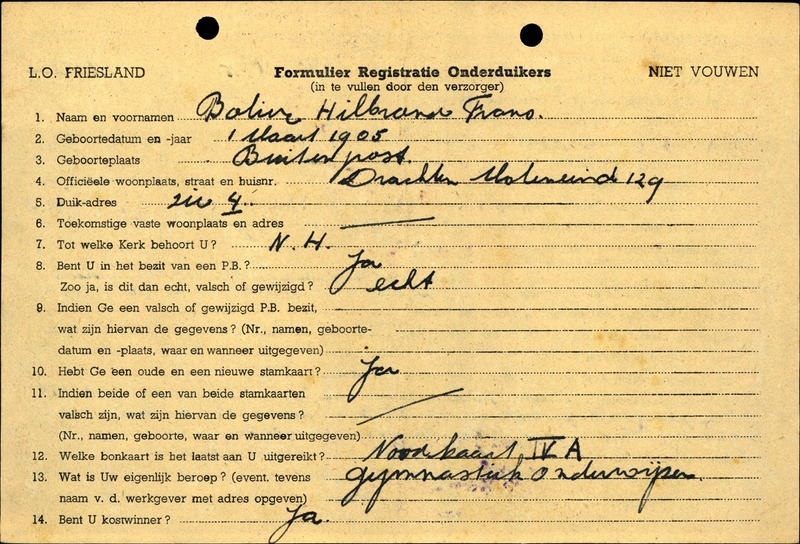 L.O. FRIESLAND Formulier Registratie Onderduikers NIET VOUWEN
(in te vullen door den verzorger)
1. Naam en voornamen Hilbrand Frans.
2. Geboortedatum en -jaar 1 Maart 1905
3. Geboorteplaats Buitenpost.
4. Officiëele woonplaats, straat en huisnr. Drachten Moleneind 129
5. Duik-adres zie 4.
6. Toekomstige vaste woonplaats en adres
7. Tot welke Kerk behoort U? N.H.
8. Bent U in het bezit van een P.B.? Ja
Zoo ja, is dit dan echt, valsch of gewijzigd? echt
9. Indien Ge een valsch of gewijzigd P.B. bezit,
wat zijn hiervan de gegevens? (Nr., namen, geboorte-
datum en -plaats, waar en wanneer uitgegeven)
10. Hebt Ge een oude en een nieuwe stamkaart? Ja
11. Indien beide of een van beide stamkaarten
valsch zijn, wat zijn hiervan de gegevens?
(Nr., namen, geboorte, waar en wanneer uitgegeven)
12. Welke bonkaart is het laatst aan U uitgereikt? Noodkaart IV A
13. Wat is Uw eigenlijk beroep? (event. tevens gymnastiek onderwijzer.
naam v. d. werkgever met adres opgeven)
14. Bent U kostwinner? Ja.